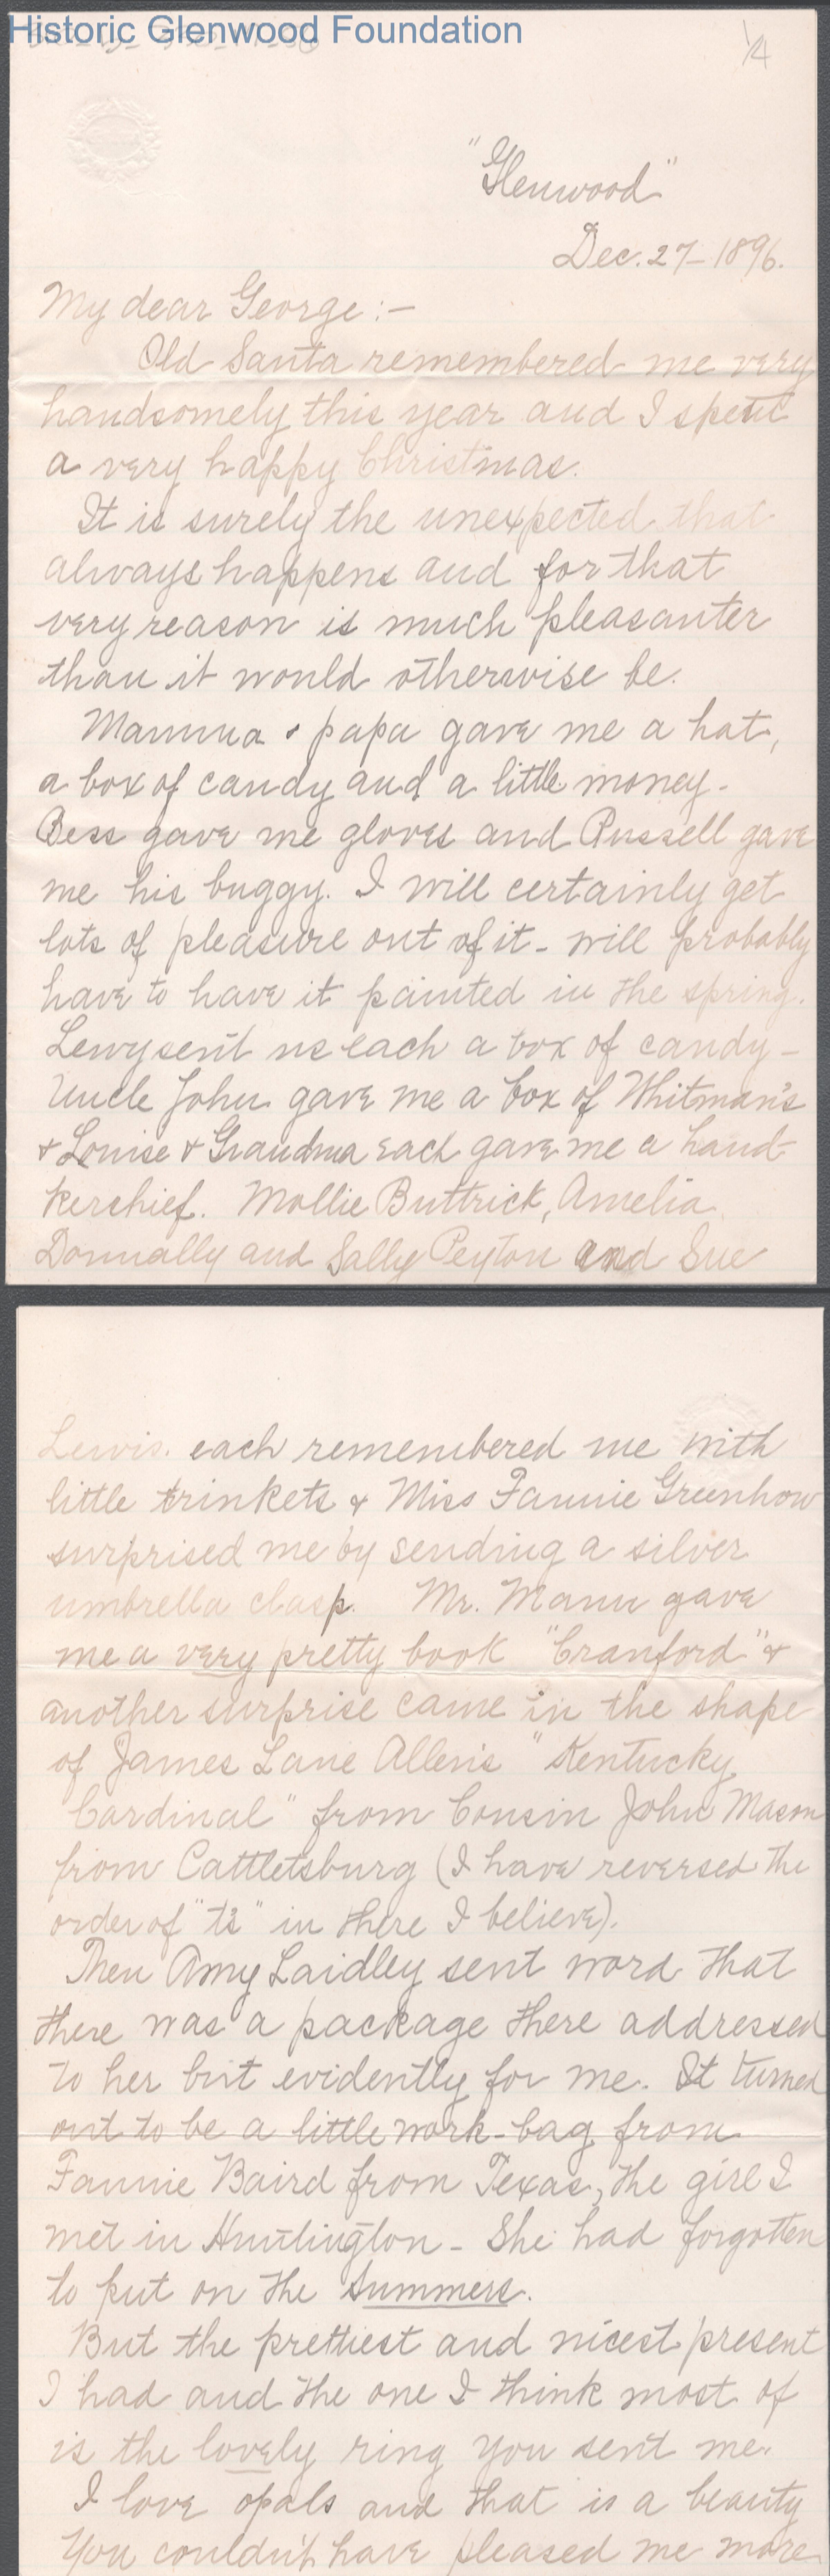 Historic Glenwood Foundation
1/4
"Glenwood"
Dec. 27-1896.
My dear George:-
Old Santa remembered me very
handsomely this year and I spent
a very happy Christmas.
It is surely the unexpected that
always happens and for that
very reason is much pleasanter
than it would otherwise be.
Mamma & papa gave me a hat,
a box of candy and a little money-
Bess gave me gloves and Russell gave
me his buggy. I will certainly get
lots of pleasure out of it- will probably
have to have it painted in the spring.
Lewy sent us each a box of candy-
Uncle John gave me a box of Whitman's
& Louise & Grandma each gave me a hand-
kerchief. Mollie Buttrick, Amelia
Donnally and Sally Peyton and Sue
Lewis. each remembered me with
little trinkets & Miss Fannie Greenhow
surprised me by sending a silver
umbrella clasp. Mr. Mann gave
me a very pretty book "Cranford" &
another surprise came in the shape
of James Lane Allen's "Kentucky
Cardinal" from Cousin John Mason
from Cattletsburg (I have reversed the
order of "t's" in there I believe).
Then Amy Laidley sent word that
there was a package there addressed
to her but evidently for me. It turned
out to be a little work-bag from
Fannie Baird from Texas, the girl I
met in Huntington- She had forgotten
to put on the Summers.
But the prettiest and nicest present
I had and the one I think most of
is the lovely ring you sent me.
I love opals and that is a beauty
You couldn't have pleased me more